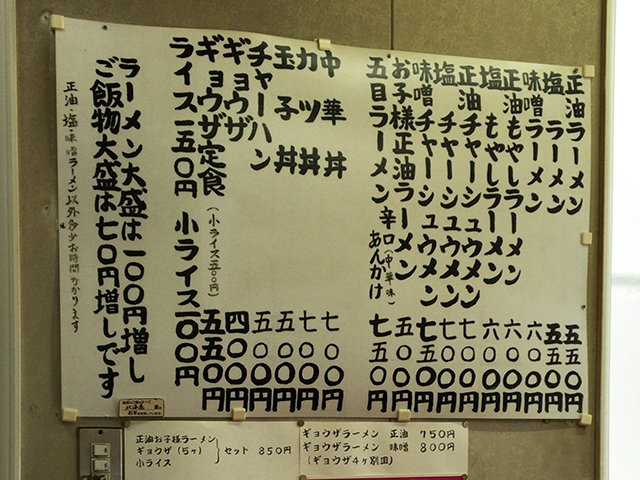 正油ラーメン 五五〇円
塩ラーメン 五五〇円
味噌ラーメン 六〇〇円
正油もやしラーメン 六〇〇円
塩もやしラーメン 六〇〇円
正油チャーシュウメン 七〇〇円
塩チャーシュウメン 七〇〇円
味噌チャーシュウメン 七五〇円
お子様正油ラーメン 五〇〇円
五目ラーメン 辛口(中華味)あんかけ 七五〇円
中華丼 七〇〇円
カツ丼 七〇〇円
玉子丼 五〇〇円
チャーハン 五〇〇円
ギョウザ 四〇〇円
ギョウザ定食 (小ライス) 五五〇円
ライス一五〇円 小ライス一〇〇円
ラーメン大盛は一〇〇円増し
ご飯物大盛は七〇円増しです
正油・塩・味噌ラーメン以外多少お時間かかります
北海道
正油お子様ラーメン
ギョウザ(5ヶ) セット 850円
小ライス
ギョウザラーメン 正油 750円
ギョウザラーメン 味噌 800円
(ギョウザ4ヶ別皿)